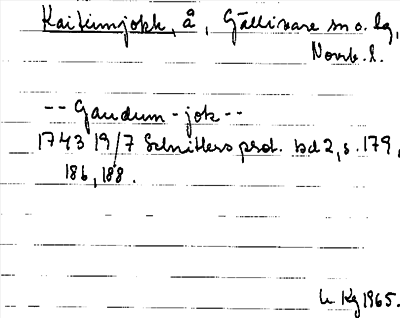 Kaitumjokk, å, Gällivare sn o. lg,
Norrb. l.
-- Gaudum - jok --
1743 19/7 Schnitlers prot. bd 2, s. 179,
186, 188.
Kg 1965.